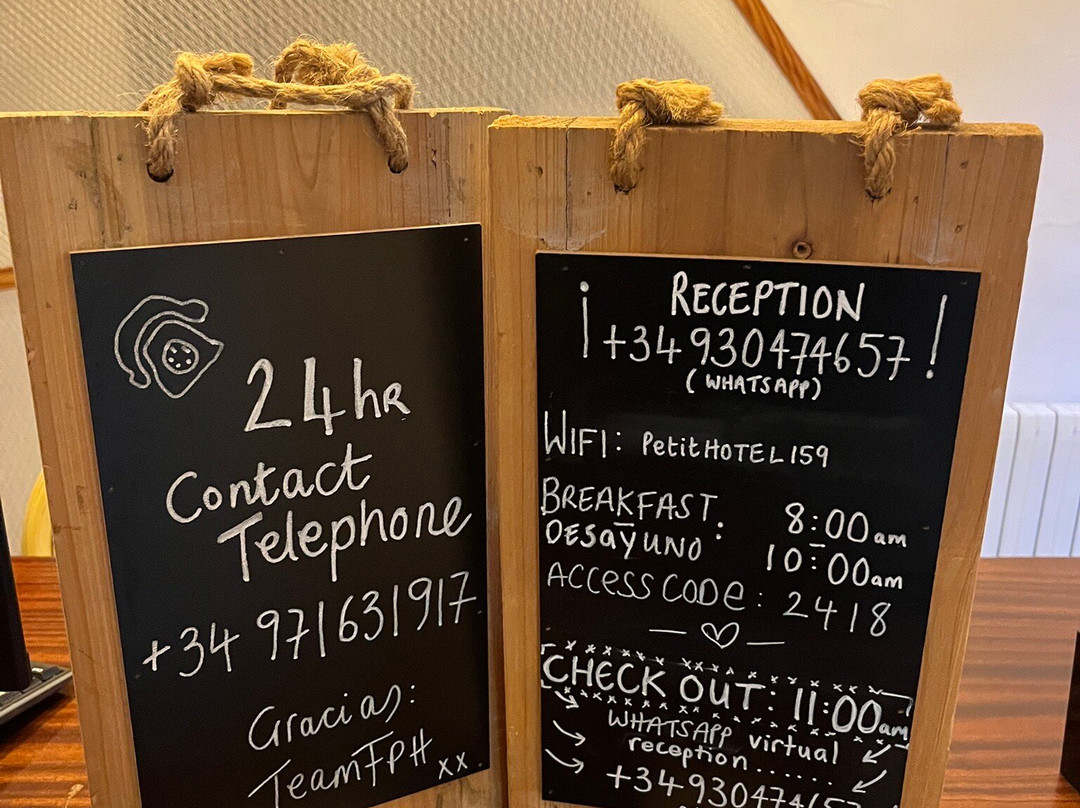 24hr
Contact
Telephone
+34 971631917
Gracias:
TeamFPH xx
¡ RECEPTION !
+34930474657
(WHATSAPP)
WIFI: PetitHOTEL159
BREAKFAST : 8:00am
DESAYUNO - 10:00am
ACCESS CODE: 2418
CHECK OUT: 11:00am
WHATSAPP virtual
reception......
+34930474657